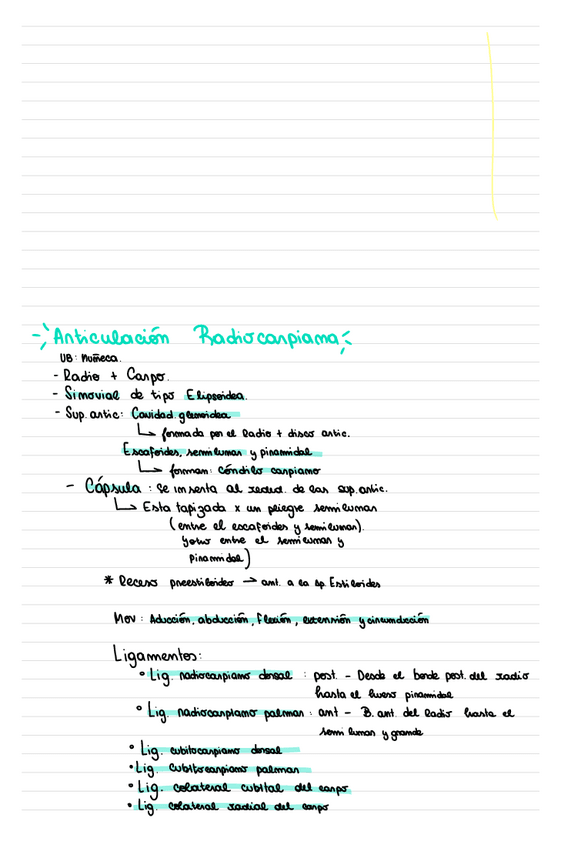 Articulación Radiocarpiana
UB: Muñeca.
- Radio + Carpo.
- Sinovial de tipo Elipsoidea.
- Sup. artic: Cavidad glenoidea
formada por el Radio + disco artic.
Escafoides, semilunar y piramidal
forman: Cóndilo carpiano
- Cápsula: Se inserta al reded. de las sup. artic.
Esta tapizada x un pliegre semilunar
(entre el escafoides y semilunar).
y otro entre el semilunar y
piramidal)
* Receso preestiloideo → ant. a la ap Estiloides
Mov: Aducción, abducción, flexión, extensión y circunducción
Ligamentos:
• Lig. radiocarpiano dorsal : post. - Desde el borde post. del radio
hasta el hueso piramidal
• Lig. radiocarpiano palmar : ant - B. ant. del Radio hasta el
semilunar y grande
• Lig. cubitocarpiano dorsal
• Lig. cubitocarpiano palmar
• Lig. colateral cubital del carpo
• Lig. colateral radial del carpo